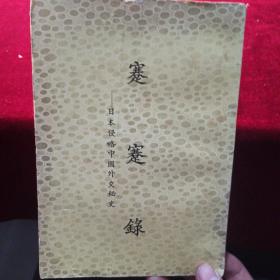 蹇蹇錄
——日本侵略中國外交秘史